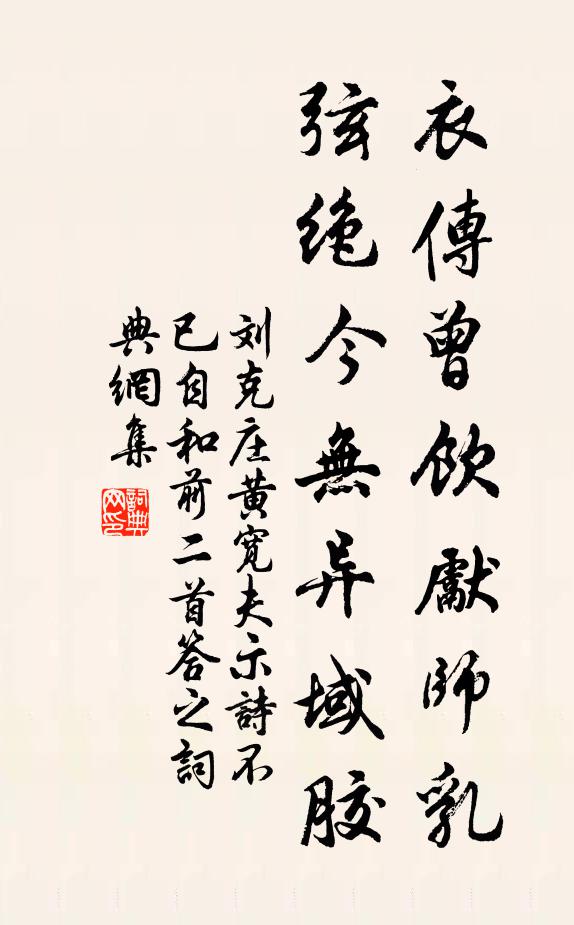 衣傳曾飲獻師乳
弦絶今無异域胶
刘克庄黄宽夫示詩不
已自和前二首答之詞
典網集
詞典
网印